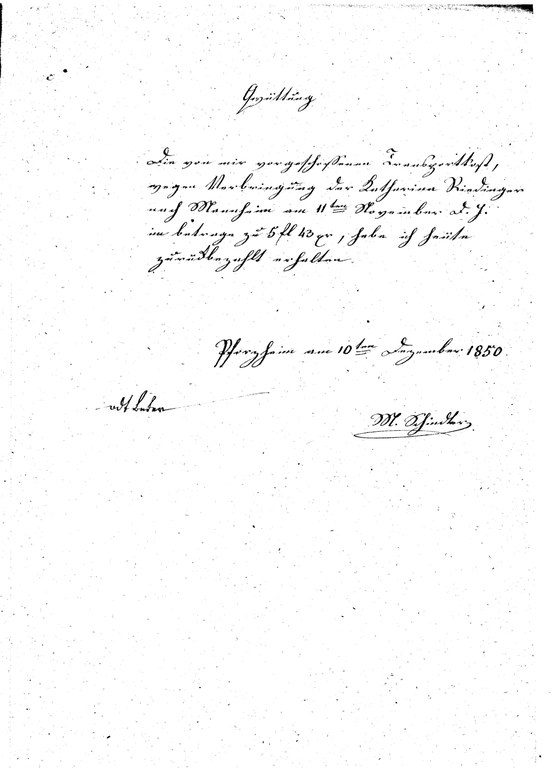 Quittung
Die von mir vorgeschossenen Transportkost,
wegen Verbringung der Katharina Riedinger
nach Mannheim am 11ten November d. J.
im betrage zu 5 fl 43 xr, habe ich heute
zurückbezahlt erhalten.
Pforzheim am 10ten Dezember 1850.
M. Schindler